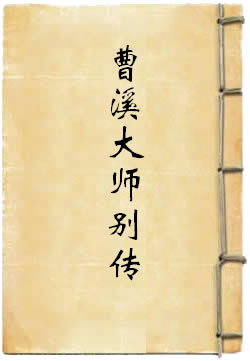 曹溪大师别传